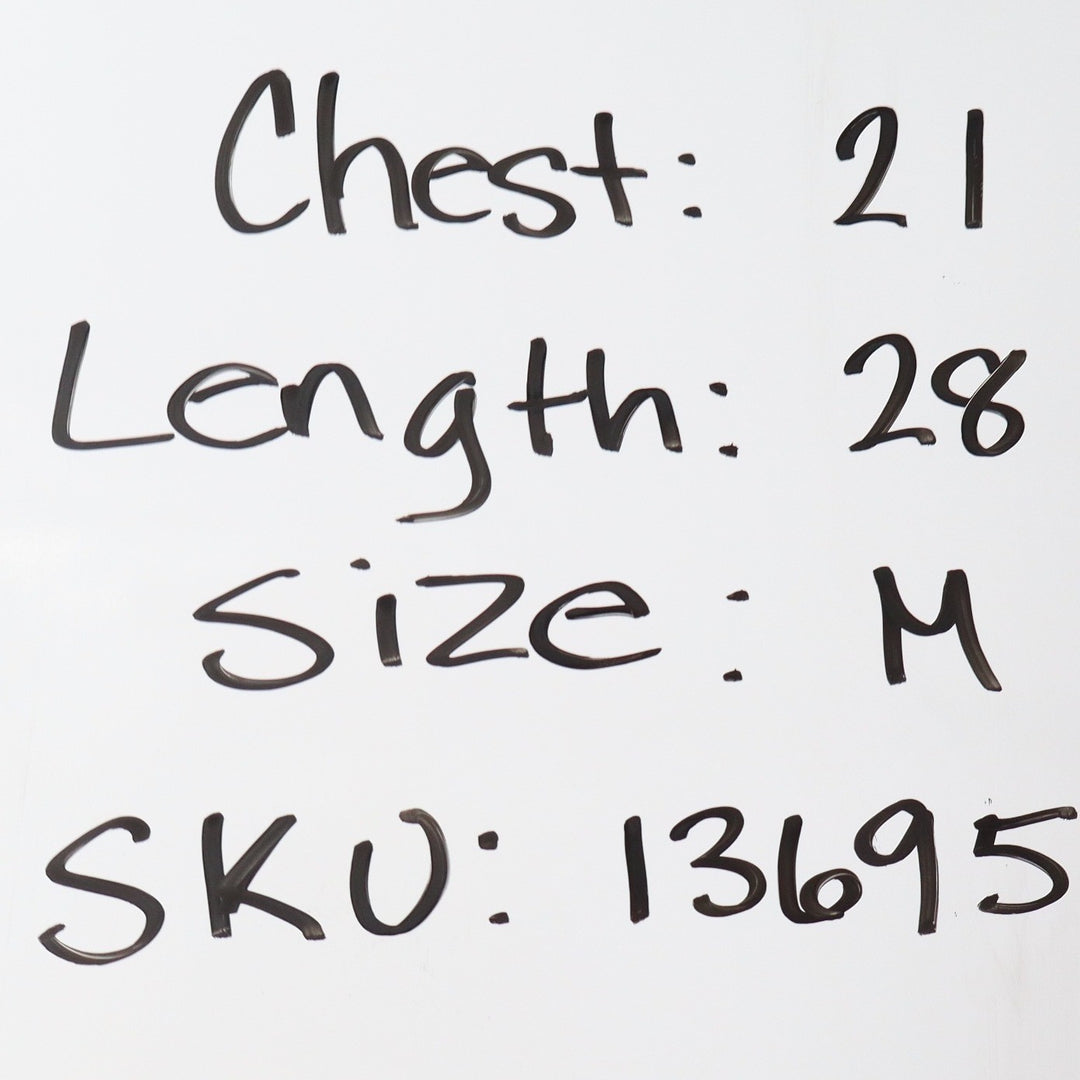 Chest: 21
Length: 28
Size: M
SKU: 13695